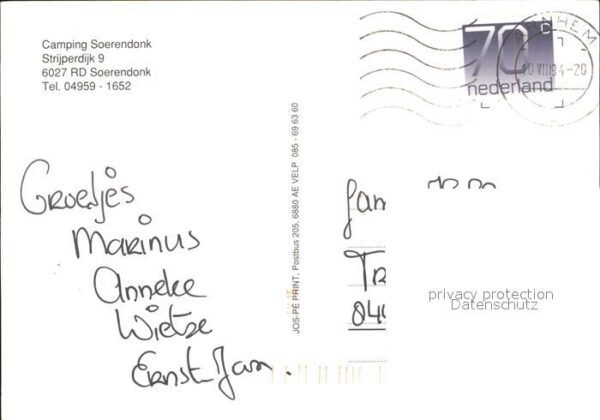 Camping Soerendonk
Strijperdijk 9
6027 RD Soerendonk
Tel. 04959 - 1652
70 c
nederland
NHEM
Groetjes
Marinus
Anneke
Wietse
Ernst-Jan.
JOS-PÉ PRINT, Postbus 205, 6880 AE VELP 085 - 69 63 60
fam
privacy protection
Datenschutz